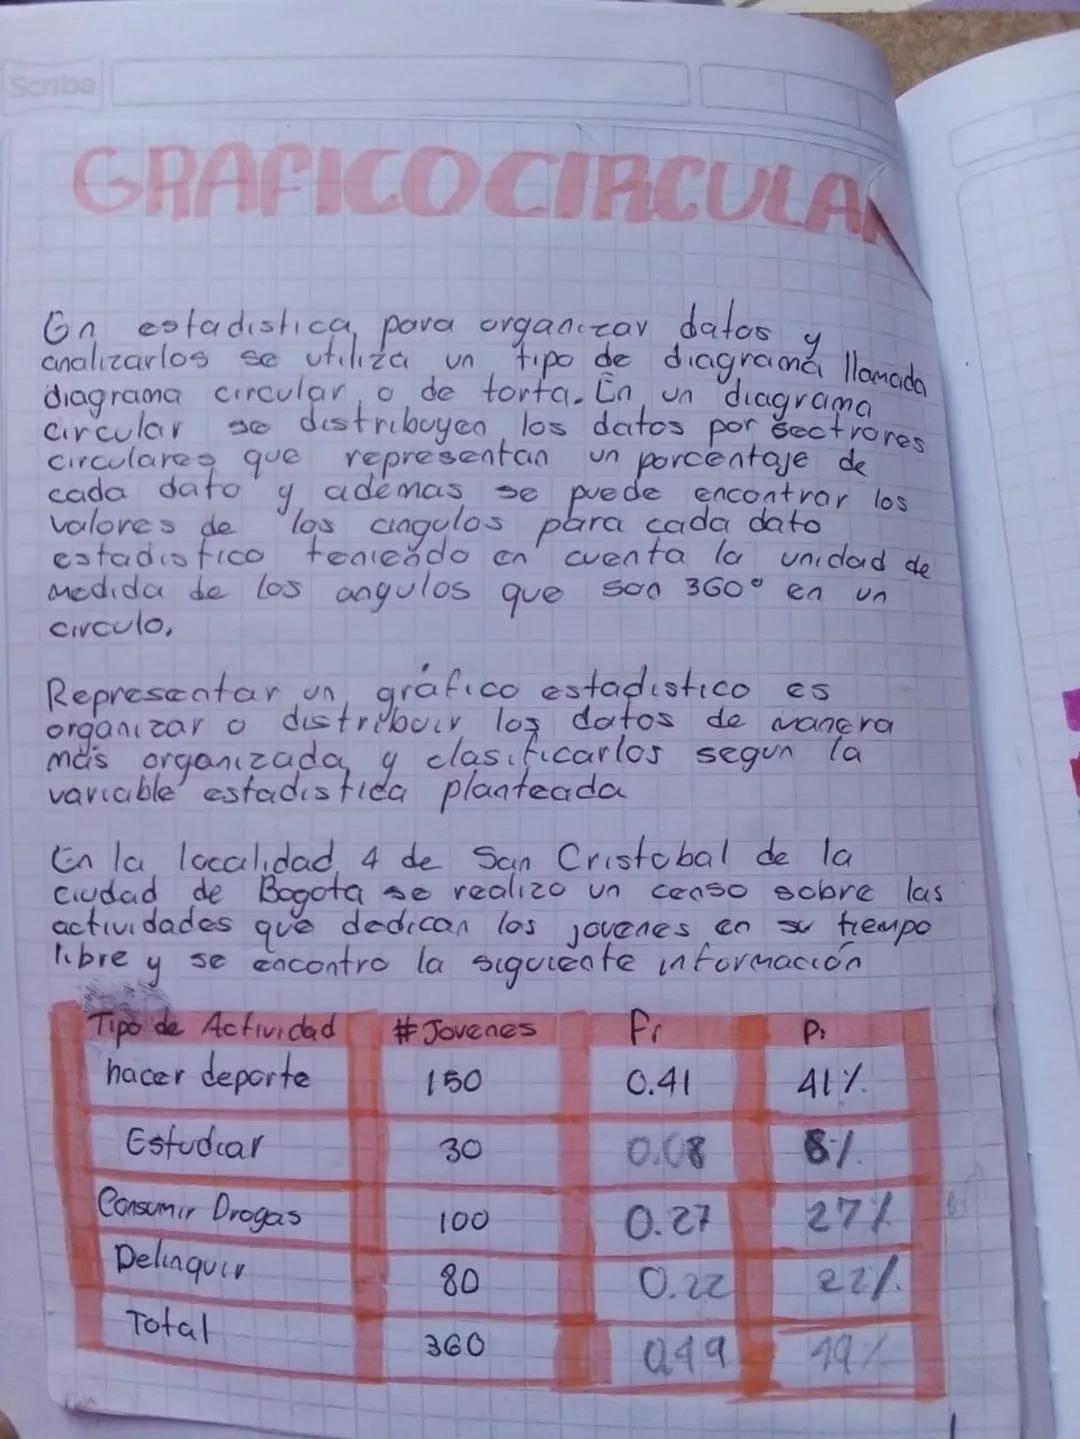 Scribe
GRAFICO CIRCULAR
En estadistica, para organizar datos y
analizarlos se utiliza un tipo de diagrama llamada
diagrama circular o de torta. En un diagrama
circular se distribuyen los datos por sectrores
circulares que representan un porcentaje de
cada dato y ademas se puede encontrar los
valores de los angulos para cada dato
estadistico teniendo en cuenta la unidad de
medida de los angulos que son 360° en un
circulo.
Representar un gráfico estadistico es
organizar o distribuir los datos de manera
más organizada y clasificarlos segun la
variable estadistica planteada
En la localidad 4 de San Cristobal de la
ciudad de Bogota se realizo un censo sobre las
actividades que dedican los jovenes en su tiempo
libre y se encontro la siguiente información
Tipo de Actividad # Jovenes Fr Pi
hacer deporte 150 0.41 41%
Estudiar 30 0.08 8%
Consumir Drogas 100 0.27 27%
Delinquir 80 0.22 22%
Total 360